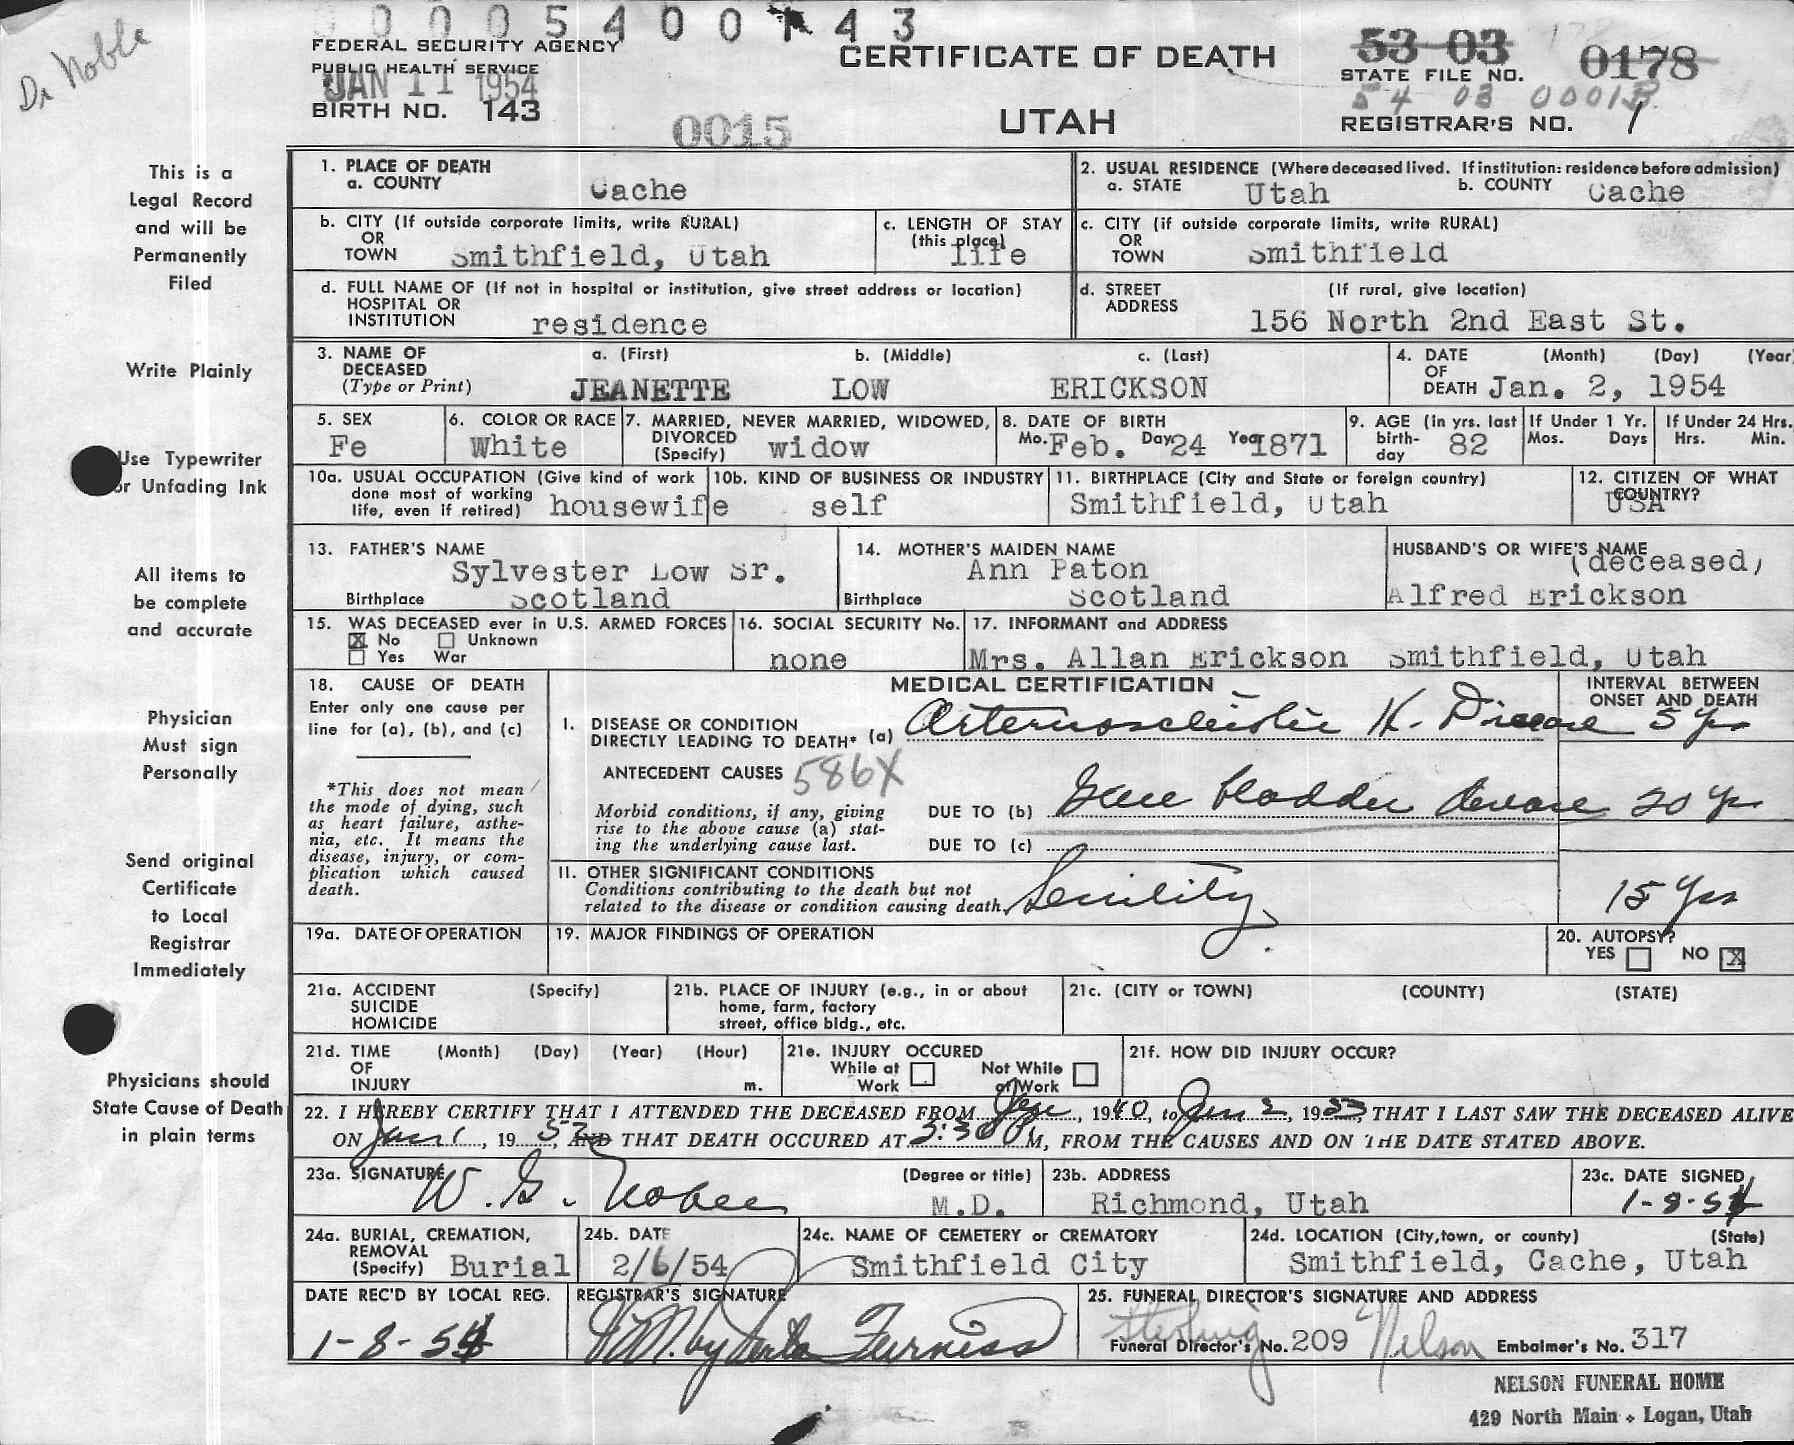 0005400143
Dr Noble
FEDERAL SECURITY AGENCY
PUBLIC HEALTH SERVICE
JAN 11 1954
BIRTH NO. 143
0015
CERTIFICATE OF DEATH
UTAH
53 03 0178
STATE FILE NO.
54 03 0001
REGISTRAR'S NO. 1
This is a
Legal Record
and will be
Permanently
Filed
Write Plainly
Use Typewriter
or Unfading Ink
All items to
be complete
and accurate
Physician
Must sign
Personally
Send original
Certificate
to Local
Registrar
Immediately
Physicians should
State Cause of Death
in plain terms
1. PLACE OF DEATH
a. COUNTY Cache
2. USUAL RESIDENCE (Where deceased lived. If institution: residence before admission)
a. STATE Utah b. COUNTY Cache
b. CITY (If outside corporate limits, write RURAL)
OR
TOWN Smithfield, Utah
c. LENGTH OF STAY
(this place)
life
c. CITY (if outside corporate limits, write RURAL)
OR
TOWN Smithfield
d. FULL NAME OF (If not in hospital or institution, give street address or location)
HOSPITAL OR
INSTITUTION residence
d. STREET (If rural, give location)
ADDRESS
156 North 2nd East St.
3. NAME OF a. (First) b. (Middle) c. (Last)
DECEASED
(Type or Print) JEANETTE LOW ERICKSON
4. DATE (Month) (Day) (Year
OF
DEATH Jan. 2, 1954
5. SEX
Fe
6. COLOR OR RACE
White
7. MARRIED, NEVER MARRIED, WIDOWED,
DIVORCED
(Specify) widow
8. DATE OF BIRTH
Mo. Feb. Day 24 Year 1871
9. AGE (in yrs. last
birth-
day 82
If Under 1 Yr.
Mos. Days
If Under 24 Hrs.
Hrs. Min.
10a. USUAL OCCUPATION (Give kind of work
done most of working
life, even if retired) housewife
10b. KIND OF BUSINESS OR INDUSTRY
self
11. BIRTHPLACE (City and State or foreign country)
Smithfield, Utah
12. CITIZEN OF WHAT
COUNTRY?
USA
13. FATHER'S NAME
Sylvester Low Sr.
Birthplace Scotland
14. MOTHER'S MAIDEN NAME
Ann Paton
Birthplace Scotland
HUSBAND'S OR WIFE'S NAME
(deceased)
Alfred Erickson
15. WAS DECEASED ever in U.S. ARMED FORCES
X No Unknown
Yes War
16. SOCIAL SECURITY No.
none
17. INFORMANT and ADDRESS
Mrs. Allan Erickson Smithfield, Utah
18. CAUSE OF DEATH
Enter only one cause per
line for (a), (b), and (c)
*This does not mean
the mode of dying, such
as heart failure, asthe-
nia, etc. It means the
disease, injury, or com-
plication which caused
death.
MEDICAL CERTIFICATION
INTERVAL BETWEEN
ONSET AND DEATH
I. DISEASE OR CONDITION
DIRECTLY LEADING TO DEATH* (a) Arteriosclerotic H. Disease 5 yrs
ANTECEDENT CAUSES 586X
Morbid conditions, if any, giving
rise to the above cause (a) stat-
ing the underlying cause last.
DUE TO (b) Gall bladder disease 20 yrs
DUE TO (c)
II. OTHER SIGNIFICANT CONDITIONS
Conditions contributing to the death but not
related to the disease or condition causing death. Senility 15 yrs
19a. DATE OF OPERATION
19. MAJOR FINDINGS OF OPERATION
20. AUTOPSY?
YES NO X
21a. ACCIDENT (Specify)
SUICIDE
HOMICIDE
21b. PLACE OF INJURY (e.g., in or about
home, farm, factory
street, office bldg., etc.
21c. (CITY or TOWN) (COUNTY) (STATE)
21d. TIME (Month) (Day) (Year) (Hour)
OF
INJURY m.
21e. INJURY OCCURED
While at Work Not While at Work
21f. HOW DID INJURY OCCUR?
22. I HEREBY CERTIFY THAT I ATTENDED THE DECEASED FROM 1940, to Jan 2, 1953, THAT I LAST SAW THE DECEASED ALIVE
ON Jan 1, 1953, AND THAT DEATH OCCURED AT 3:30 P M, FROM THE CAUSES AND ON THE DATE STATED ABOVE.
23a. SIGNATURE (Degree or title)
W. G. Noble M.D.
23b. ADDRESS
Richmond, Utah
23c. DATE SIGNED
1-8-54
24a. BURIAL, CREMATION,
REMOVAL
(Specify) Burial
24b. DATE
2/6/54
24c. NAME OF CEMETERY or CREMATORY
Smithfield City
24d. LOCATION (City, town, or county) (State)
Smithfield, Cache, Utah
DATE REC'D BY LOCAL REG.
1-8-54
REGISTRAR'S SIGNATURE
by Furniss
25. FUNERAL DIRECTOR'S SIGNATURE AND ADDRESS
Sterling Nelson
Funeral Director's No. 209 Embalmer's No. 317
NELSON FUNERAL HOME
429 North Main • Logan, Utah